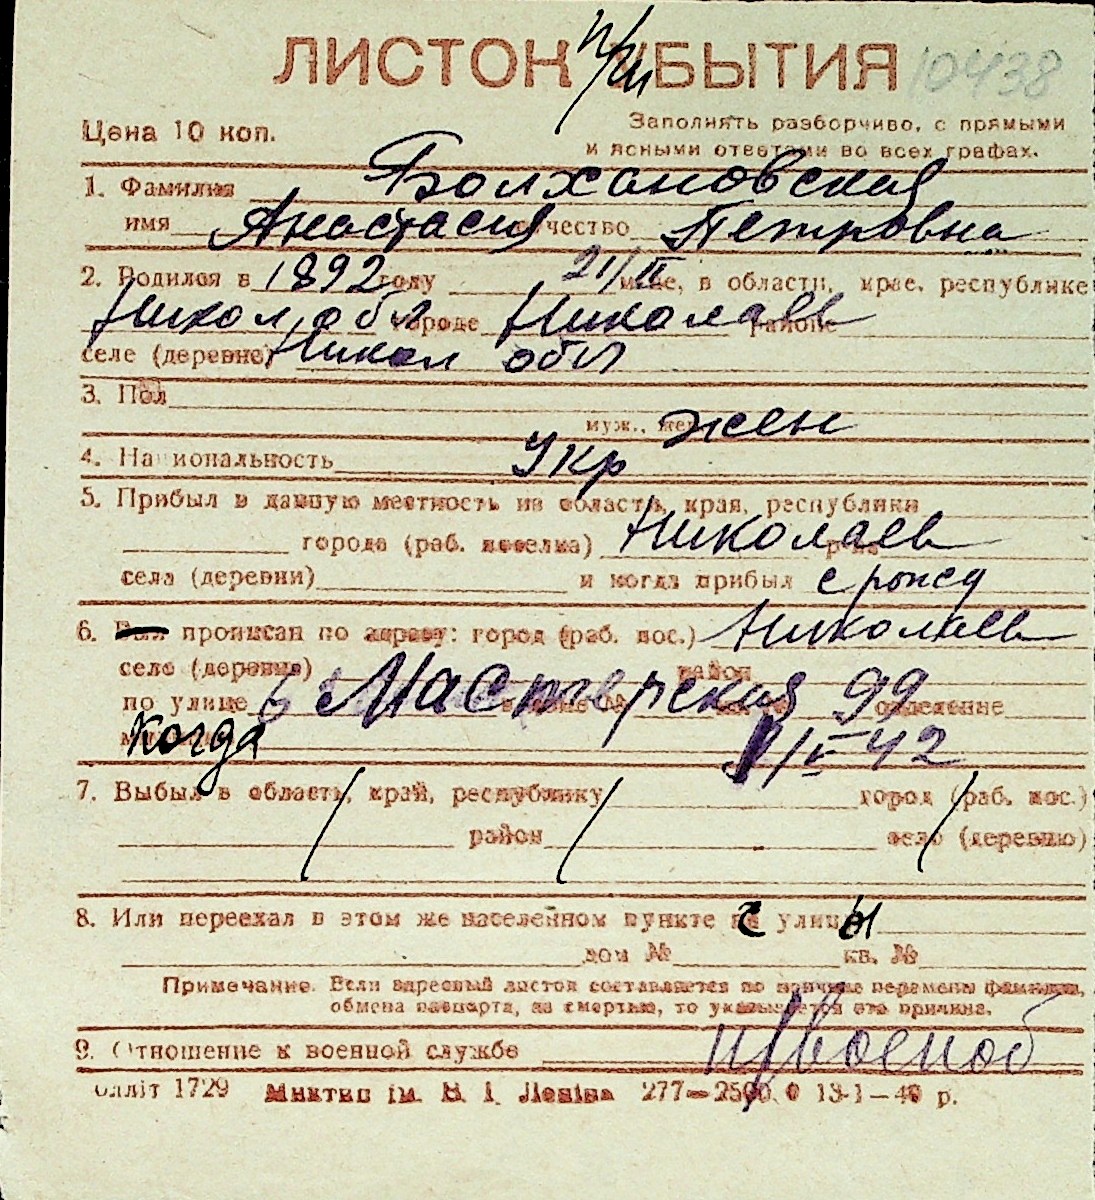 ЛИСТОК УБЫТИЯ
10438
Цена 10 коп.
Заполнять разборчиво, с прямыми
и ясными ответами во всех графах.
1. Фамилия Болхановская
имя Анастасия отчество Петровна
2. Родился в 1892 году 21/II м-це, в области, крае, республике
Никол. обл городе Николаев районе
селе (деревне) Никол обл
3. Пол
муж., жен. жен
4. Национальность Укр
5. Прибыл в данную местность из области, края, республики
города (раб. поселка) Николаев
села (деревни) и когда прибыл с рожд
6. Был прописан по адресу: город (раб. пос.) Николаев
село (деревня) район
по улице 6 Мастерская 99 отделение
Когда 1/V-42
7. Выбыл в область, край, республику город (раб. пос.)
район село (деревню)
8. Или переехал в этом же населенном пункте с улицы
дом № кв. №
Примечание. Если адресный листок составляется по причине перемены фамилии,
обмена паспорта, за смертью, то указывается эта причина.
9. Отношение к военной службе н/военоб
блліт 1729 Миктип ім. В. І. Леніна 277—2500.0 13-1—40 р.